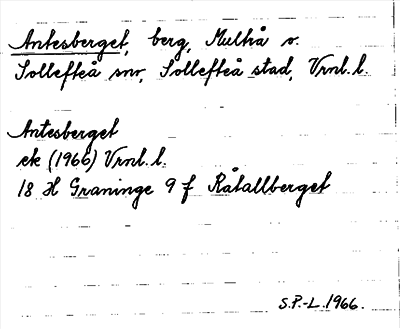 Antesberget, berg, Multrå s.
Sollefteå snv, Sollefteå stad, Vrnl. l.
Antesberget
ek (1966) Vrnl. l.
18 H Graninge 9 f Råtallberget
S.P.-L. 1966.